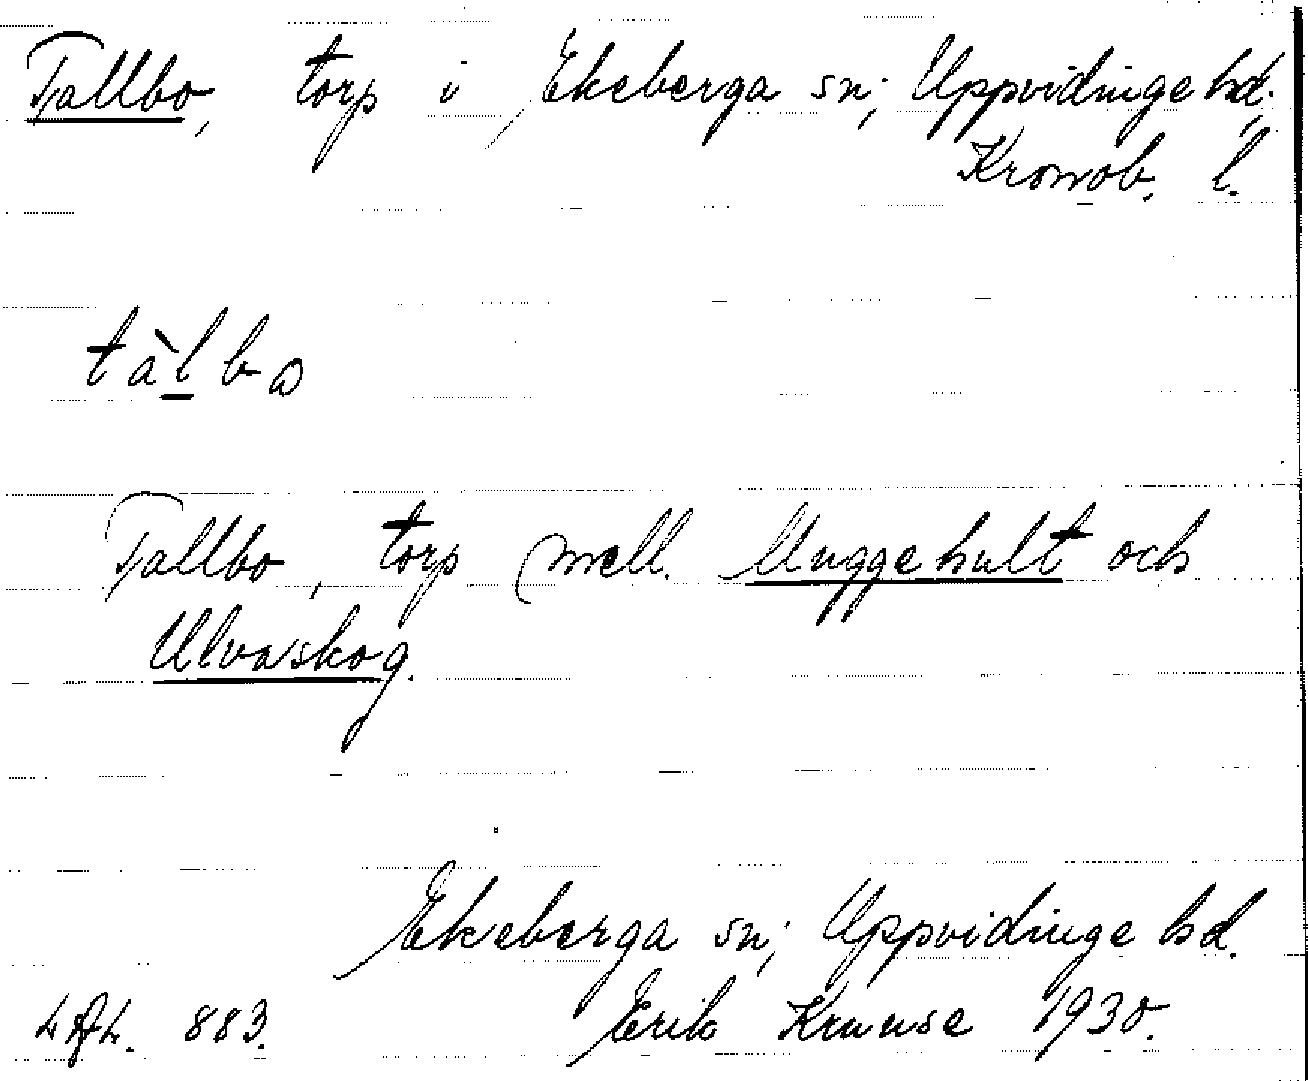 Tallbo, torp i Ekeberga sn; Uppvidinge hd.
Kronob. l.
tàlbo
Tallbo, torp mell. Muggehult och
Ulvaskog.
Ekeberga sn; Uppvidinge hd.
LAL. 883. Erik Krause 1930.